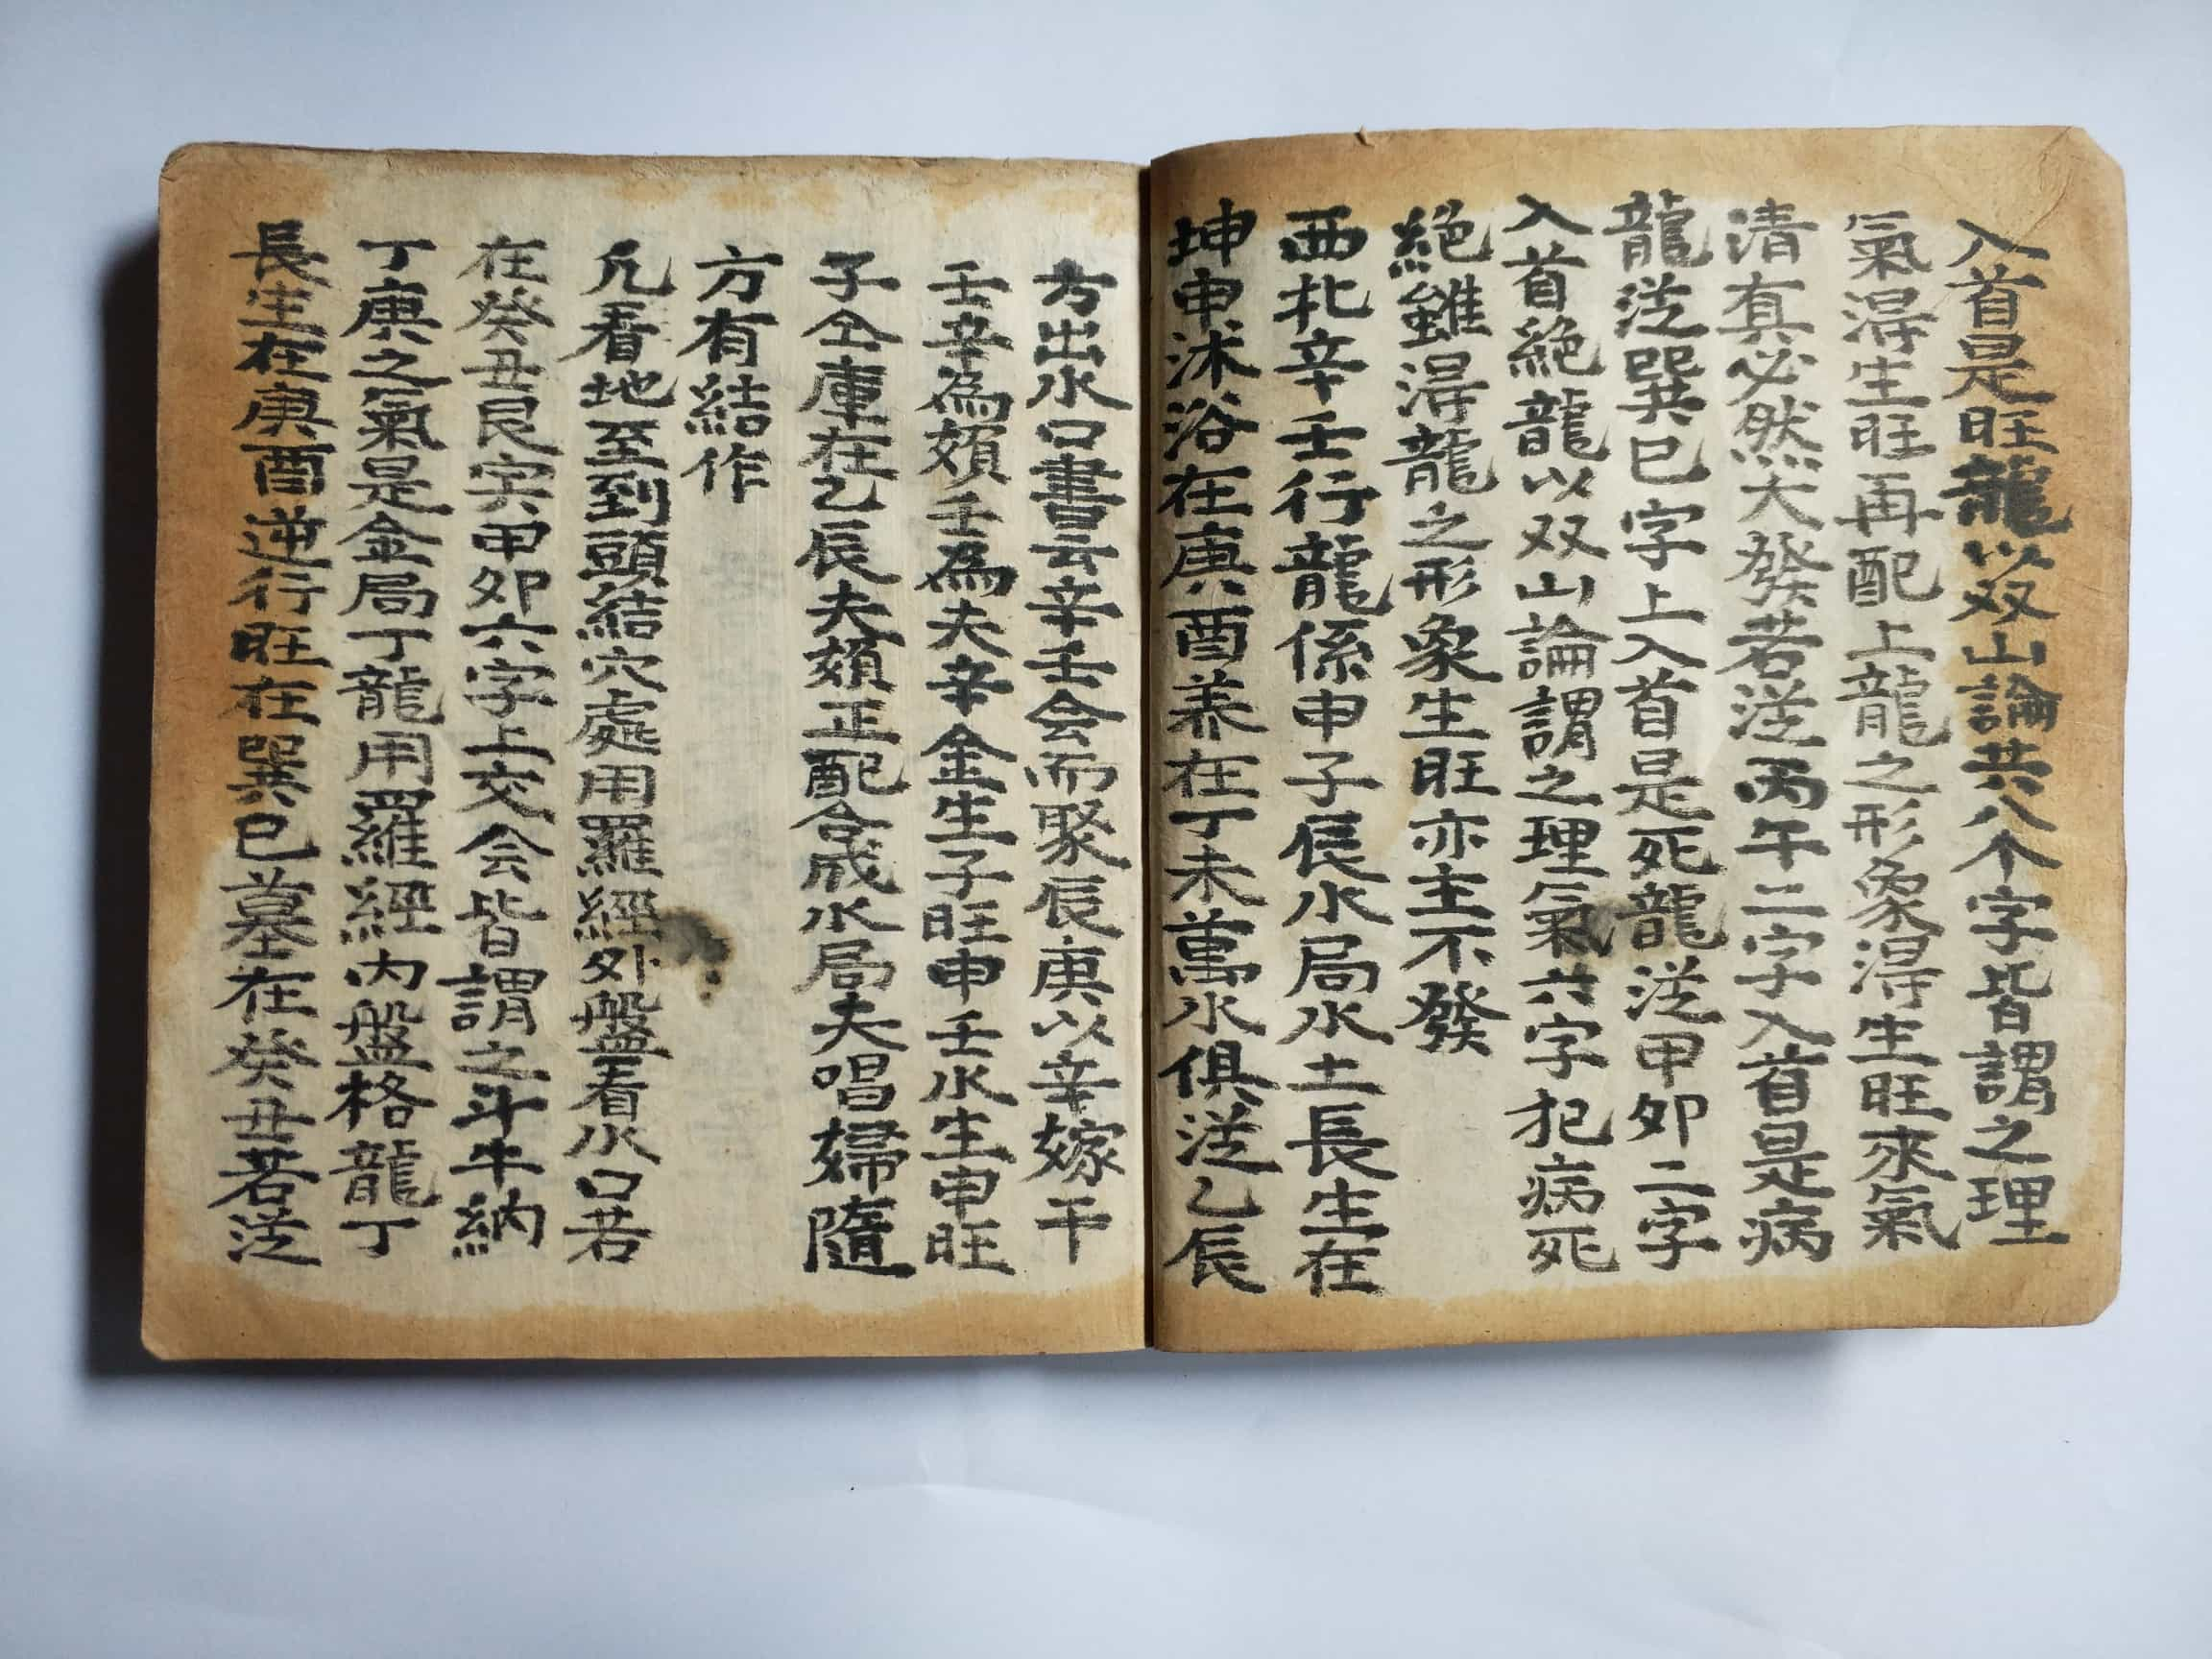 入首是旺龍以双山論共八个字皆謂之理
氣淂生旺再配上龍之形象淂生旺來氣
清真必然大發若従丙午二字入首是病
龍従巽巳字上入首是死龍従甲卯二字
入首絶龍以双山論謂之理氣六字犯病死
絶雖淂龍之形象生旺亦主不發
西北辛壬行龍係申子辰水局水土長生在
坤申沐浴在庚酉养在丁未萬水俱従乙辰
方出水口書云辛壬会而聚辰庚以辛嫁干
壬辛為妇壬為夫辛金生子旺申壬水生申旺
子仝庫在乙辰夫妇正配合成水局夫唱婦隨
方有結作
凡看地至到頭結穴處用羅經外盤看水口若
在癸丑艮寅甲卯六字上交会皆謂之斗牛納
丁庚之氣是金局丁龍用羅經内盤格龍丁
長生在庚酉逆行旺在巽巳墓在癸丑若従